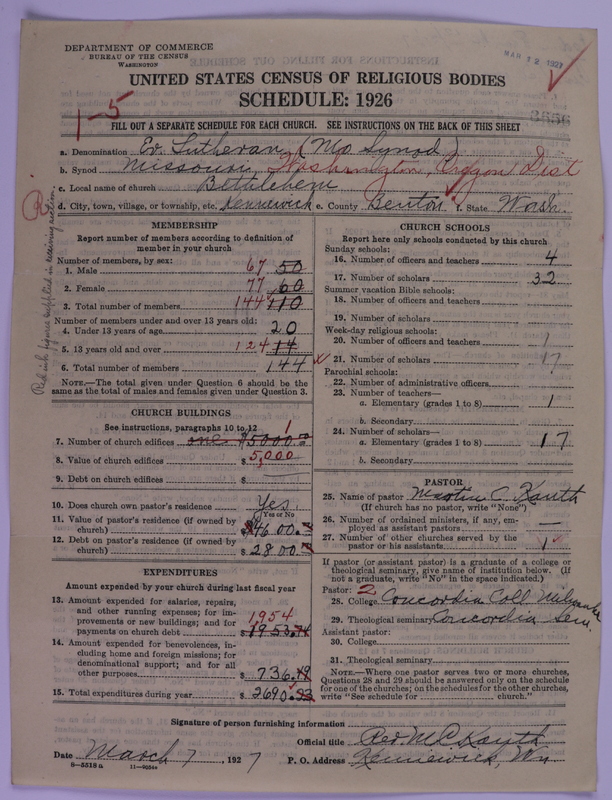 DEPARTMENT OF COMMERCE
BUREAU OF THE CENSUS
WASHINGTON
MAR 12 1927
UNITED STATES CENSUS OF RELIGIOUS BODIES
SCHEDULE: 1926
3656
1-5
FILL OUT A SEPARATE SCHEDULE FOR EACH CHURCH. SEE INSTRUCTIONS ON THE BACK OF THIS SHEET
a. Denomination Ev. Lutheran (Mo Synod)
b. Synod Missouri, Washington, Oregon Dist
c. Local name of church Bethlehem
d. City, town, village, or township, etc. Kennewick e. County Benton f. State Wash.
R
Red ink figures supplied in receiving section.
MEMBERSHIP
Report number of members according to definition of
member in your church
Number of members, by sex:
1. Male 67 50
2. Female 77 60
3. Total number of members 144 110
Number of members under and over 13 years old:
4. Under 13 years of age 20
5. 13 years old and over 124 14
6. Total number of members 144
NOTE.—The total given under Question 6 should be
the same as the total of males and females given under Question 3.
CHURCH BUILDINGS
See instructions, paragraphs 10 to 12
7. Number of church edifices one $5000.00 1
8. Value of church edifices $ 5,000
9. Debt on church edifices $
10. Does church own pastor's residence Yes
Yes or No
11. Value of pastor's residence (if owned by
church) $4600.
12. Debt on pastor's residence (if owned by
church) $ 2800.
EXPENDITURES
Amount expended by your church during last fiscal year
13. Amount expended for salaries, repairs,
and other running expenses; for im-
provements or new buildings; and for
payments on church debt $ 1953.74 1,954
14. Amount expended for benevolences, in-
cluding home and foreign missions; for
denominational support; and for all
other purposes $ 736.19
15. Total expenditures during year $ 2690.93
CHURCH SCHOOLS
Report here only schools conducted by this church
Sunday schools:
16. Number of officers and teachers 4
17. Number of scholars 32
Summer vacation Bible schools:
18. Number of officers and teachers
19. Number of scholars
Week-day religious schools:
20. Number of officers and teachers 1
21. Number of scholars 17
Parochial schools:
22. Number of administrative officers
23. Number of teachers—
a. Elementary (grades 1 to 8) 1
b. Secondary
24. Number of scholars—
a. Elementary (grades 1 to 8) 17
b. Secondary
PASTOR
25. Name of pastor Martin C Kauth
(If church has no pastor, write "None")
26. Number of ordained ministers, if any, em-
ployed as assistant pastors —
27. Number of other churches served by the
pastor or his assistants 1
If pastor (or assistant pastor) is a graduate of a college or
theological seminary, give name of institution below. (If
not a graduate, write "No" in the space indicated.)
Pastor: 2
28. College Concordia Coll Milwaukee
29. Theological seminary Concordia Sem.
Assistant pastor:
30. College
31. Theological seminary
NOTE.—Where one pastor serves two or more churches,
Questions 28 and 29 should be answered only on the schedule
for one of the churches; on the schedules for the other churches,
write "See schedule for church."
Signature of person furnishing information
Official title Rev. M C Kauth
Date March 7, 1927 P. O. Address Kennewick, Wn
8—5518 a 11—9054a